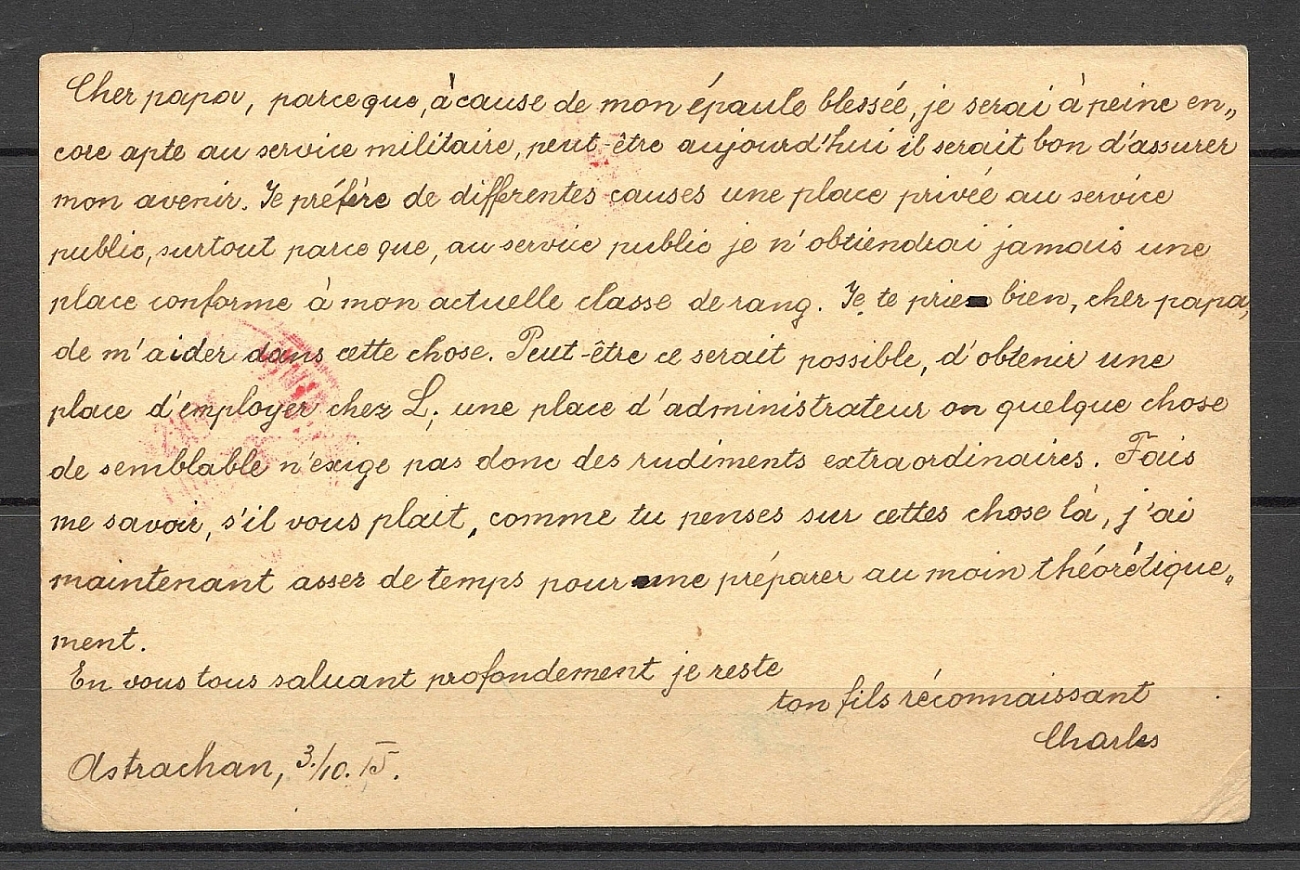 Cher papa, parceque, à cause de mon épaule blessée, je serai à peine en„
core apte au service militaire, peut-être aujourd'hui il serait bon d'assurer
mon avenir. Je préfère de differentes causes une place privée au service
public, surtout parce que, au service public je n'obtiendrai jamais une
place conforme à mon actuelle classe de rang. Je te prie bien, cher papa,
de m'aider dans cette chose. Peut-être ce serait possible, d'obtenir une
place d'employer chez L; une place d'administrateur on quelque chose
de semblable n'exige pas donc des rudiments extraordinaires. Fais
me savoir, s'il vous plait, comme tu penses sur cettes chose là, j'ai
maintenant assez de temps pour me préparer au moin théorétique„
ment.
En vous tous saluant profondement je reste
ton fils réconnaissant
Charles
Astrachan, 3./10. 15.